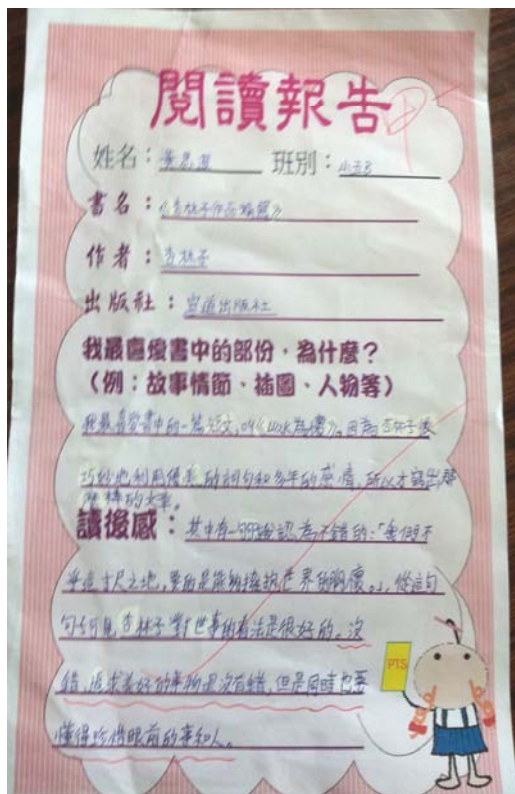 閱讀報告
姓名： 班別：小五B
書名：《杏林子作品精選》
作者：杏林子
出版社：宣道出版社
我最喜愛書中的部份，為什麼？
（例：故事情節、插圖、人物等）
我最喜愛書中的一篇短文，叫《以水為樓》。因為杏林子很
巧妙地利用優美的詞句和多年的感情，所以才寫出那
麼棒的文章。
讀後感：其中有一句我認為不錯的：「我們不
爭這寸尺之地，要的是能夠擁抱世界的胸懷。」從這句
句子可見杏林子對世事的看法是很好的。沒
錯，追求美好的事物是沒有錯，但是同時也要
懂得珍惜眼前的事和人。
PTS